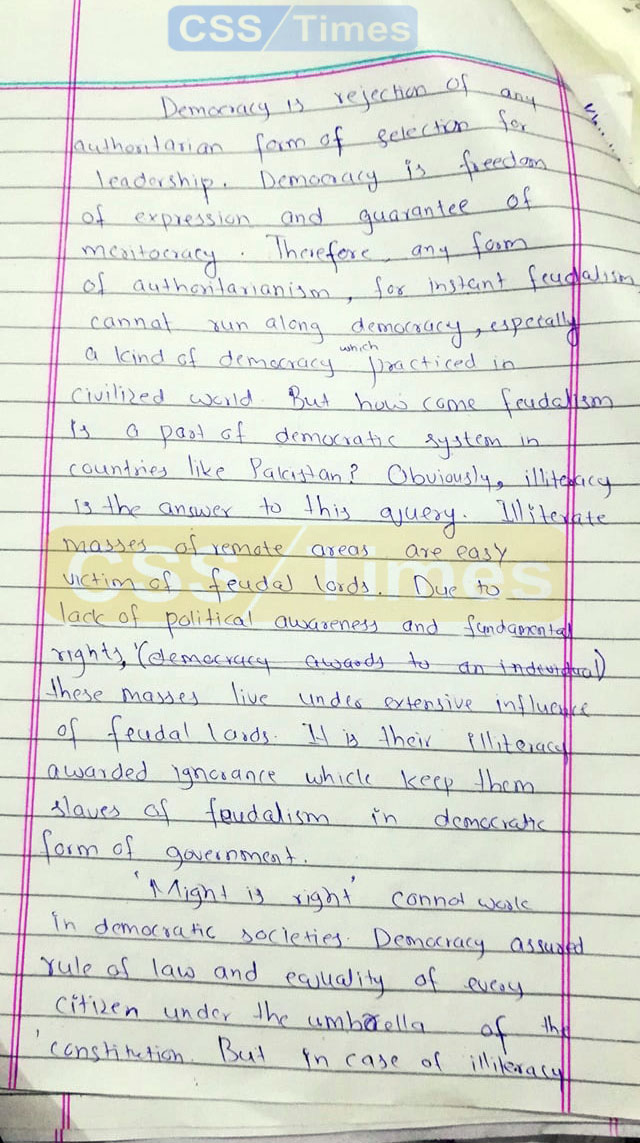 CSS Times
Democracy is rejection of any
authoritarian form of selection for
leadership. Democracy is freedom
of expression and guarantee of
meritocracy. Therefore, any form
of authoritarianism, for instant feudalism
cannot run along democracy, especially
a kind of democracy which practiced in
civilized world. But how come feudalism
is a part of democratic system in
countries like Pakistan? Obviously, illiteracy
is the answer to this query. Illiterate
masses of remote areas are easy
victim of feudal lords. Due to
lack of political awareness and fundamental
rights, (democracy awards to an individual)
these masses live under extensive influence
of feudal lords. It is their illiteracy
awarded ignorance which keep them
slaves of feudalism in democratic
form of government.
'Might is right' cannot work
in democratic societies. Democracy assured
rule of law and equality of every
citizen under the umbrella of the
constitution. But in case of illiteracy